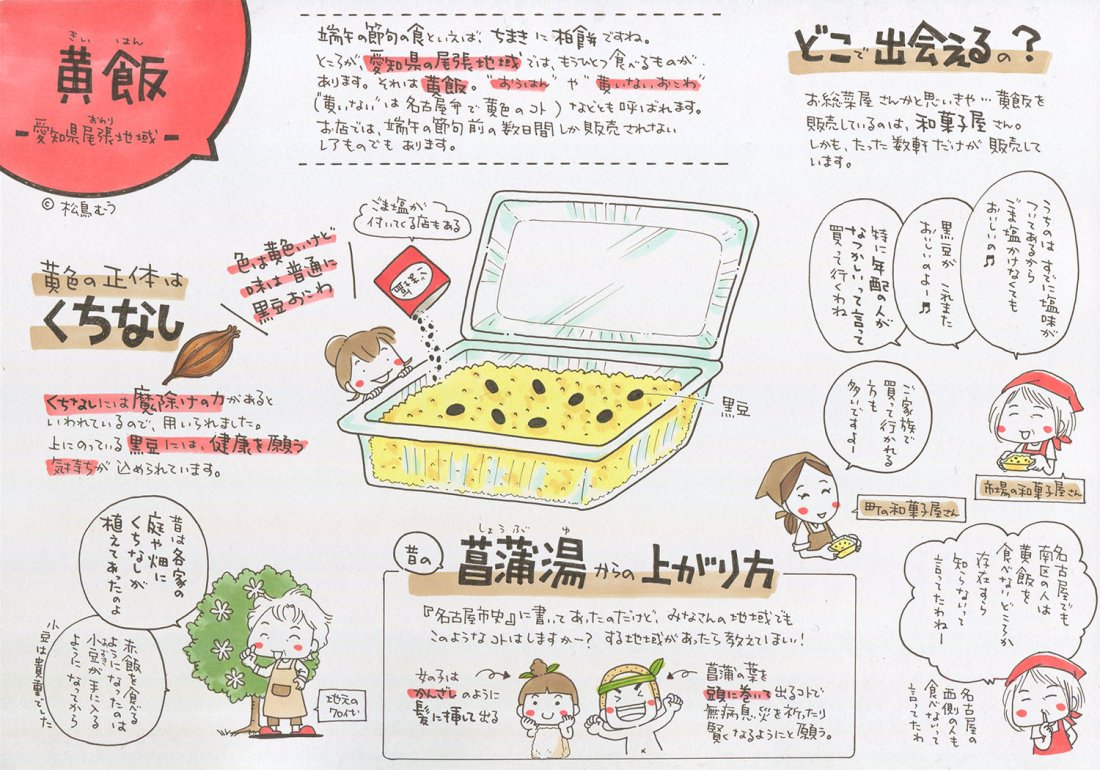 きい はん
黄飯
おわり
愛知県尾張地域
© 松鳥むう
端午の節句の食といえば、ちまきに柏餅ですね。
ところが、愛知県の尾張地域では、もうひとつ食べるものが
あります。それは黄飯。"おうはん"や"黄いないおこわ"
("黄いない"は名古屋弁で黄色のコト)などとも呼ばれます。
お店では、端午の節句前の数日間しか販売されない
レアものでもあります。
どこで出会えるの?
お総菜屋さんかと思いきや…黄飯を
販売しているのは、和菓子屋さん。
しかも、たった数軒だけが販売して
います。
うちのは すでに塩味が
ついてあるから
ごま塩かけなくても
おいしいの♫
黒豆が これまた
おいしいのよー♫
特に年配の人が
なつかしいって言って
買って行くわね
ご家族で
買って行かれる
方も
多いですよー
市場の和菓子屋さん
町の和菓子屋さん
名古屋でも
南区の人は
黄飯を
食べないどころか
存在すら
知らないって
言ってたわねー
名古屋の
西側の人も
食べないって
言ってたわ
ごま塩が
付いてくる店もある
ごま塩
色は黄色いけど
味は普通に
黒豆おこわ
黒豆
黄色の正体は
くちなし
くちなしには魔除けの力があると
いわれているので、用いられました。
上にのっている黒豆には、健康を願う
気持ちが込められています。
昔は各家の
庭や畑に
くちなしが
植えてあったのよ
赤飯を食べる
ようになったのは
小豆が手に入る
あずき
ようになってから
小豆は貴重でした
地元の
70代
昔の
しょうぶ ゆ
菖蒲湯からの上がり方
『名古屋市史』に書いてあったのだけど、みなさんの地域でも
このようなコトはしますかー? する地域があったら教えてほしい!
女の子は
かんざしのように
髪に挿して出る
菖蒲の葉を
頭に巻いて出るコトで
無病息災を祈ったり
賢くなるようにと願う。